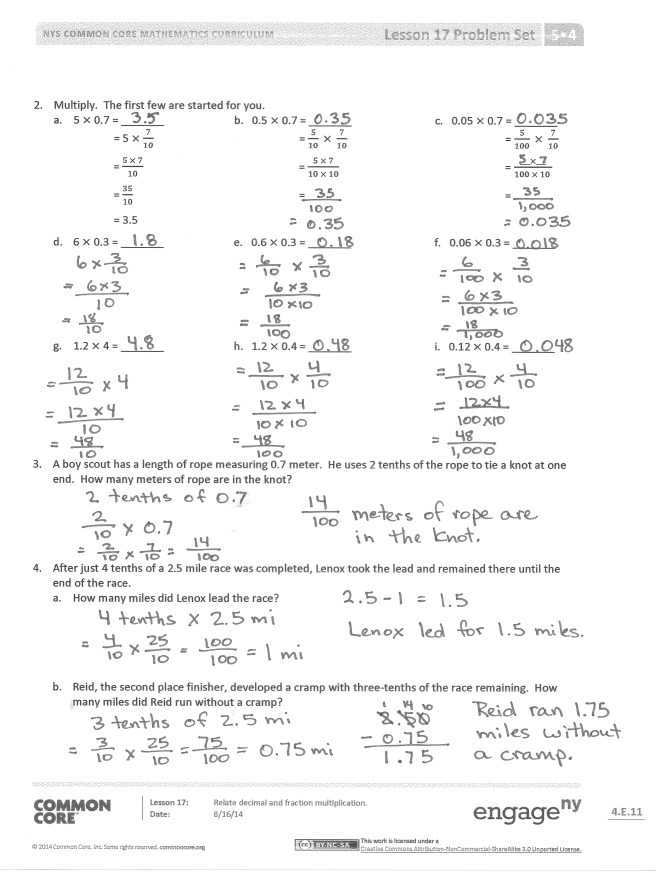 NYS COMMON CORE MATHEMATICS CURRICULUM Lesson 17 Problem Set 5•4
2. Multiply. The first few are started for you.
a. 5 × 0.7 = 3.5 b. 0.5 × 0.7 = 0.35 c. 0.05 × 0.7 = 0.035
= 5 × 7/10 = 5/10 × 7/10 = 5/100 × 7/10
= 5 × 7/10 = 5 × 7/10 × 10 = 5 × 7/100 × 10
= 35/10 = 35/100 = 35/1,000
= 3.5 = 0.35 = 0.035
d. 6 × 0.3 = 1.8 e. 0.6 × 0.3 = 0.18 f. 0.06 × 0.3 = 0.018
6 × 3/10 = 6/10 × 3/10 = 6/100 × 3/10
= 6×3/10 = 6×3/10×10 = 6×3/100×10
= 18/10 = 18/100 = 18/1,000
g. 1.2 × 4 = 4.8 h. 1.2 × 0.4 = 0.48 i. 0.12 × 0.4 = 0.048
= 12/10 × 4 = 12/10 × 4/10 = 12/100 × 4/10
= 12×4/10 = 12×4/10×10 = 12×4/100×10
= 48/10 = 48/100 = 48/1,000
3. A boy scout has a length of rope measuring 0.7 meter. He uses 2 tenths of the rope to tie a knot at one
end. How many meters of rope are in the knot?
2 tenths of 0.7
2/10 × 0.7
= 2/10 × 7/10 = 14/100
14/100 meters of rope are
in the knot.
4. After just 4 tenths of a 2.5 mile race was completed, Lenox took the lead and remained there until the
end of the race.
a. How many miles did Lenox lead the race?
4 tenths × 2.5 mi
= 4/10 × 25/10 = 100/100 = 1 mi
2.5 - 1 = 1.5
Lenox led for 1.5 miles.
b. Reid, the second place finisher, developed a cramp with three-tenths of the race remaining. How
many miles did Reid run without a cramp?
3 tenths of 2.5 mi
= 3/10 × 25/10 = 75/100 = 0.75 mi
1 14 10
2.50
- 0.75
1.75
Reid ran 1.75
miles without
a cramp.
COMMON
CORE
Lesson 17: Relate decimal and fraction multiplication.
Date: 8/16/14
engageny
4.E.11
© 2014 Common Core, Inc. Some rights reserved. commoncore.org
cc BY-NC-SA
This work is licensed under a
Creative Commons Attribution-NonCommercial-ShareAlike 3.0 Unported License.